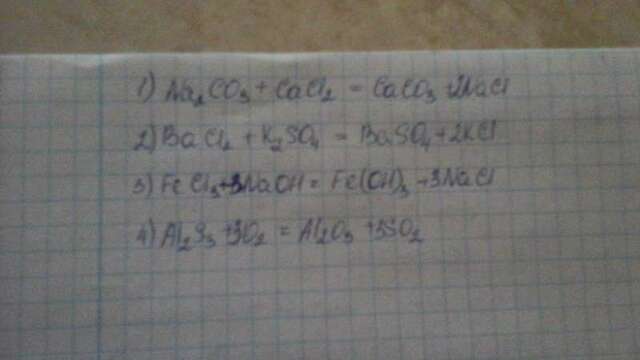 1) Na₂CO₃ + CaCl₂ = CaCO₃ + 2NaCl
2) BaCl₂ + K₂SO₄ = BaSO₄ + 2KCl
3) FeCl₃ + 3NaOH = Fe(OH)₃ + 3NaCl
4) Al₂S₃ + 3O₂ = Al₂O₃ + 3SO₂